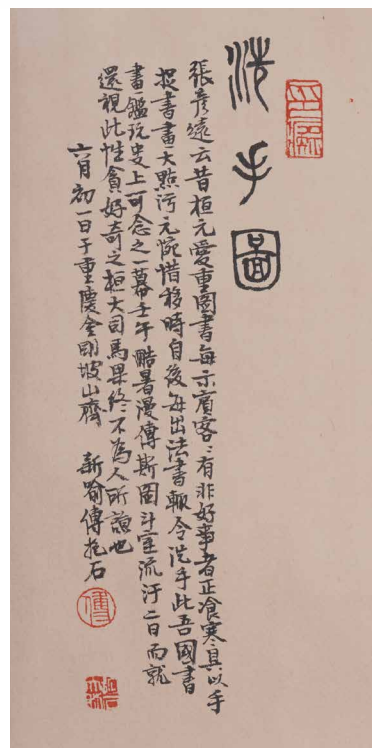 洗手圖
張彥遠云昔桓元愛重圖書每示賓客〻有非好事者正飡寒具以手
捉書畫大點污元惋惜移時自後每出法書輒令洗手此吾國書
畫鑑玩史上可念之一幕壬午酷暑漫傳斯圖斗室流汗二日而就
還視此性貪好奇之桓大司馬果終不為人所諒也
六月初一日于重慶金剛坡山齋 新喻傅抱石
傅